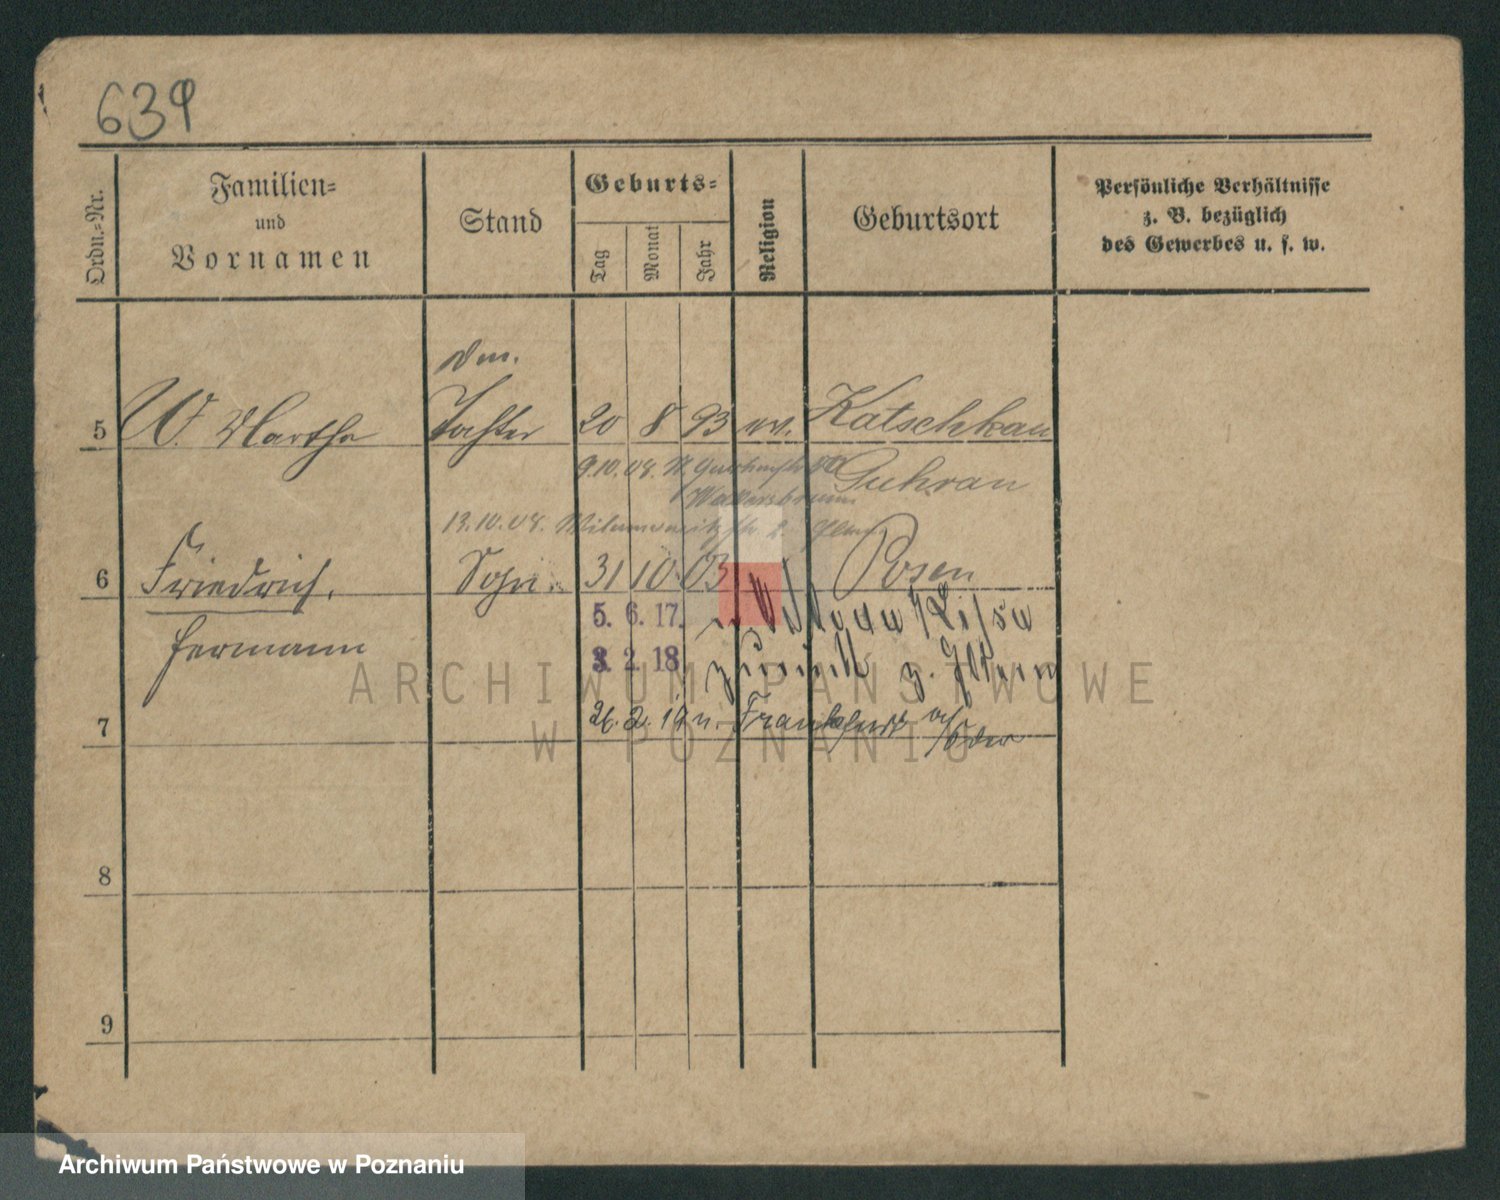 639
Ordn.-Nr.
Familien-
und
Vornamen
Stand
Geburts-
Tag
Monat
Jahr
Religion
Geburtsort
Persönliche Verhältnisse
z. B. bezüglich
des Gewerbes u. s. w.
5 W. Martha Tochter 20 8 93 ev. Katschkau
9.10.08. Guhrau
13.10.08.
6 Friedrich, Sohn. 31 10 03 Posen
5. 6. 17.
Hermann
2. 18. zurück z. Eltern
7 2. 19 n. Frankfurt a/Oder
8
9
ARCHIWUM PAŃSTWOWE
W POZNANIU
Archiwum Państwowe w Poznaniu